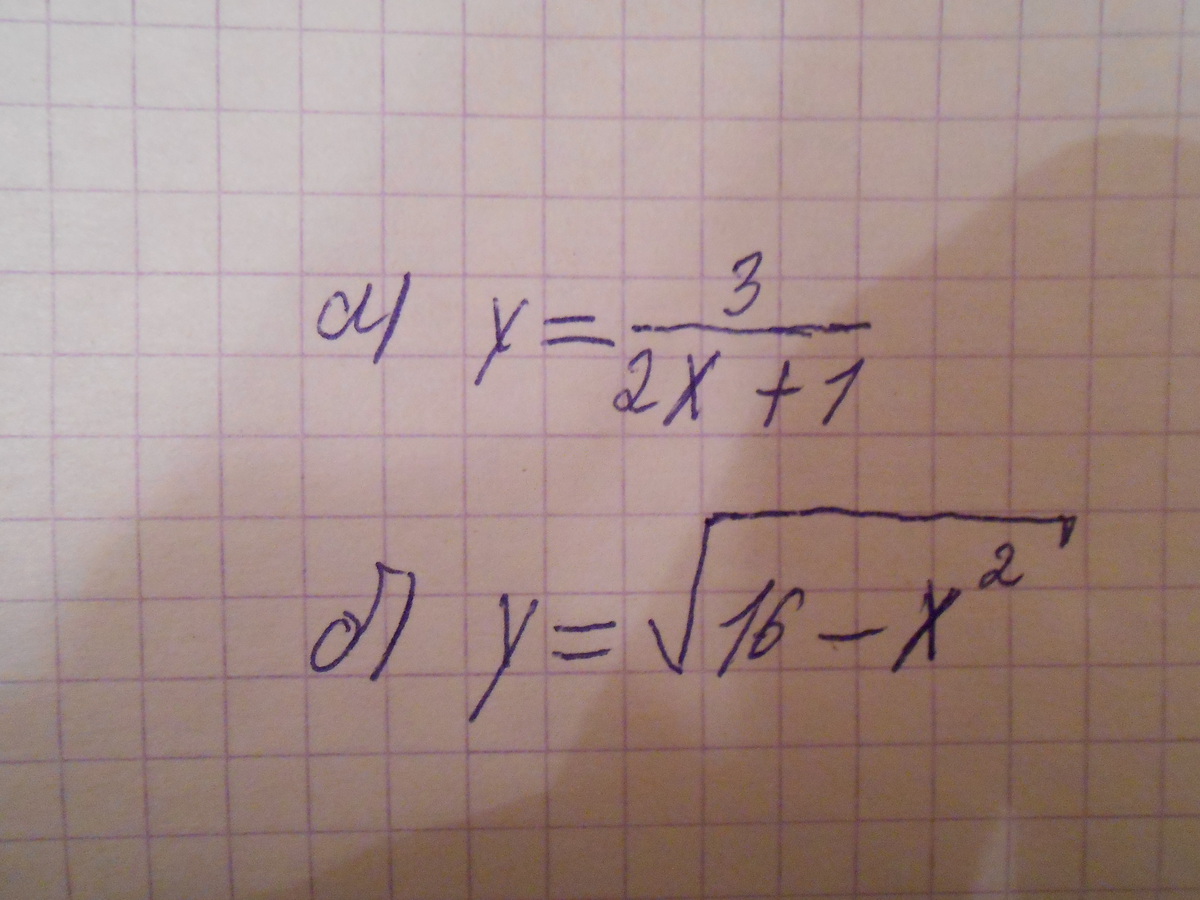 а) y = 3/(2x + 1)
б) y = √(16 - x²)